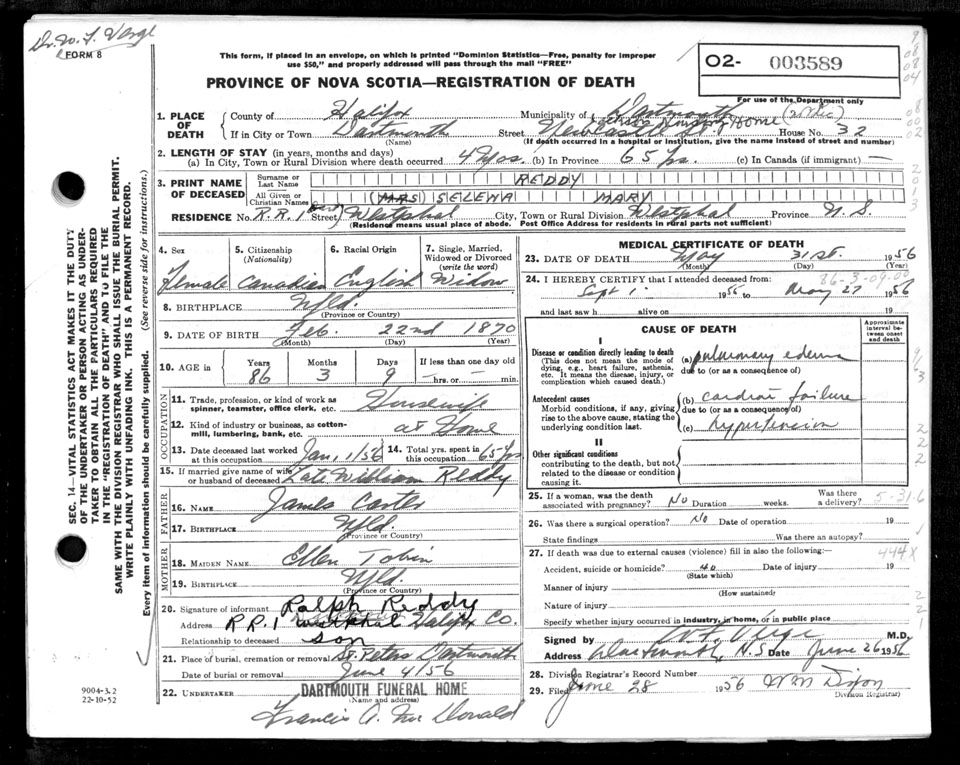 Dr. W. F. Verge
FORM 8
This form, if placed in an envelope, on which is printed "Dominion Statistics—Free, penalty for improper
use $50," and properly addressed will pass through the mail "FREE"
PROVINCE OF NOVA SCOTIA—REGISTRATION OF DEATH
O2- 003589
For use of the Department only
1. PLACE OF DEATH
County of Halifax Municipality of Dartmouth
If in City or Town Dartmouth Street Newcastle St. House No. 32
(Name) (If death occurred in a hospital or institution, give the name instead of street and number)
2. LENGTH OF STAY (in years, months and days)
(a) In City, Town or Rural Division where death occurred 4 Mos. (b) In Province 65 Yrs. (c) In Canada (if immigrant) —
3. PRINT NAME OF DECEASED
Surname or Last Name REDDY
All Given or Christian Names (MRS) SELENA MARY
RESIDENCE No. R.R. 1 Street Westphal City, Town or Rural Division Westphal Province N.S.
(Residence means usual place of abode. Post Office Address for residents in rural parts not sufficient)
4. Sex Female
5. Citizenship (Nationality) Canadian
6. Racial Origin English
7. Single, Married, Widowed or Divorced (write the word) Widow
8. BIRTHPLACE Nfld
(Province or Country)
9. DATE OF BIRTH Feb. 22nd 1870
(Month) (Day) (Year)
10. AGE in Years 86 Months 3 Days 9 If less than one day old — hrs. or — min.
OCCUPATION
11. Trade, profession, or kind of work as spinner, teamster, office clerk, etc. Housewife
12. Kind of industry or business, as cotton-mill, lumbering, bank, etc. at Home
13. Date deceased last worked at this occupation Jan. 1/56
14. Total yrs. spent in this occupation 65 Yrs
15. If married give name of wife or husband of deceased Late William Reddy
FATHER
16. NAME James Carter
17. BIRTHPLACE Nfld.
(Province or Country)
MOTHER
18. MAIDEN NAME Ellen Tobin
19. BIRTHPLACE Nfld.
(Province or Country)
20. Signature of informant Ralph Reddy
Address R.R. 1 Westphal Halifax Co.
Relationship to deceased son
21. Place of burial, cremation or removal St. Peters Dartmouth
Date of burial or removal June 4/56
22. UNDERTAKER DARTMOUTH FUNERAL HOME
(Name and address)
Francis A. McDonald
MEDICAL CERTIFICATE OF DEATH
23. DATE OF DEATH May 31st. 1956
(Month) (Day) (Year)
24. I HEREBY CERTIFY that I attended deceased from:
Sept 1. 1955 to May 27 1956
and last saw h alive on 19
CAUSE OF DEATH
Approximate interval between onset and death
I
Disease or condition directly leading to death
(This does not mean the mode of dying, e.g., heart failure, asthenia, etc. It means the disease, injury, or complication which caused death.)
(a) pulmonary edema
due to (or as a consequence of)
Antecedent causes
Morbid conditions, if any, giving rise to the above cause, stating the underlying condition last.
(b) cardiac failure
due to (or as a consequence of)
(c) hypertension
II
Other significant conditions
contributing to the death, but not related to the disease or condition causing it.
25. If a woman, was the death associated with pregnancy? No Duration weeks. Was there a delivery?
5-31-6
26. Was there a surgical operation? No Date of operation 19
State findings Was there an autopsy?
27. If death was due to external causes (violence) fill in also the following:—
444X
Accident, suicide or homicide? no Date of injury 19
(State which)
Manner of injury
(How sustained)
Nature of injury
Specify whether injury occurred in industry, in home, or in public place
Signed by W. F. Verge M.D.
Address Dartmouth, N.S Date June 26 1956
28. Division Registrar's Record Number
29. Filed June 28 1956 W M Dixon
(Division Registrar)
SEC. 14—VITAL STATISTICS ACT MAKES IT THE DUTY
OF THE UNDERTAKER OR PERSON ACTING AS UNDER-
TAKER TO OBTAIN ALL THE PARTICULARS REQUIRED
IN THE "REGISTRATION OF DEATH" AND TO FILE THE
SAME WITH THE DIVISION REGISTRAR WHO SHALL ISSUE THE BURIAL PERMIT.
WRITE PLAINLY WITH UNFADING INK. THIS IS A PERMANENT RECORD.
Every item of information should be carefully supplied. (See reverse side for instructions.)
9004-3.2
22-10-52